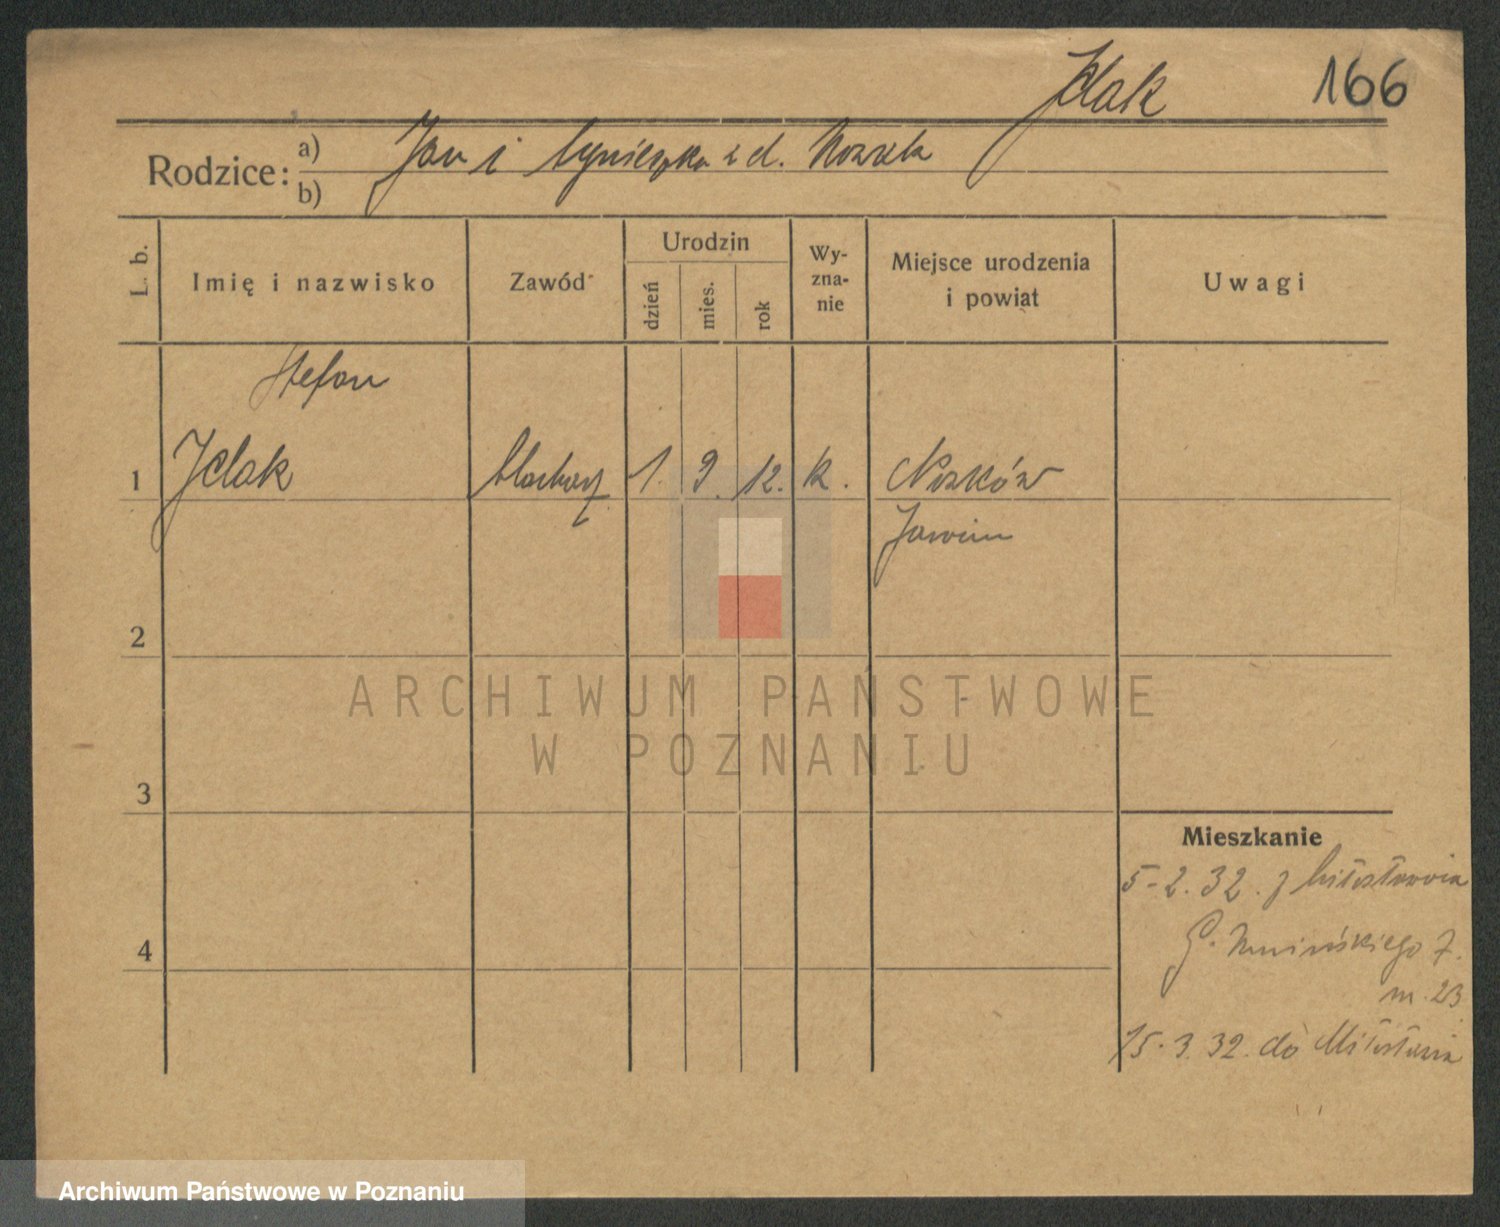 Jelak 166
Rodzice: a) Jan i Agnieszka z d. Nowak
b)
L. b. Imię i nazwisko Zawód Urodzin dzień mies. rok Wy-zna-nie Miejsce urodzenia i powiat Uwagi
Stefan
1 Jelak 1. 9. 12. k. Nosków
Jarocin
2
3
Mieszkanie
5-2.32. z Miłosławia
4
7.
m. 23
15.3.32. do Miłosławia
ARCHIWUM PAŃSTWOWE
W POZNANIU
Archiwum Państwowe w Poznaniu